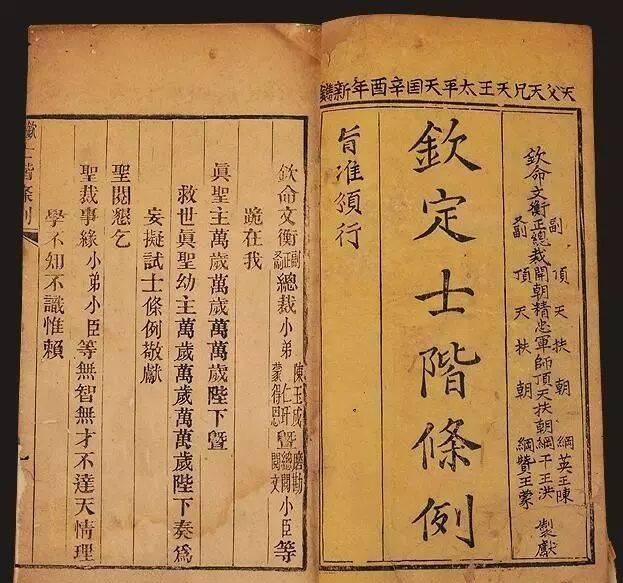 天父天兄天王太平天囯辛酉年新鐫
欽命文衡正總裁開朝精忠軍師頂天扶朝綱干王洪
副 頂天扶朝綱英王陳
又副 頂天扶朝綱贊王蒙
製獻
欽定士階條例
旨准頒行
欽命文衡正副又副總裁小弟陳玉成仁玕蒙得恩暨總閱磨勘閱文小臣等
跪在我
眞聖主萬歲萬歲萬萬歲陛下暨
救世眞聖幼主萬歲萬歲萬萬歲陛下奏爲
妄擬試士條例敬獻
聖閱懇乞
聖裁事緣小弟小臣等無智無才不達天情理
學不知不識惟賴